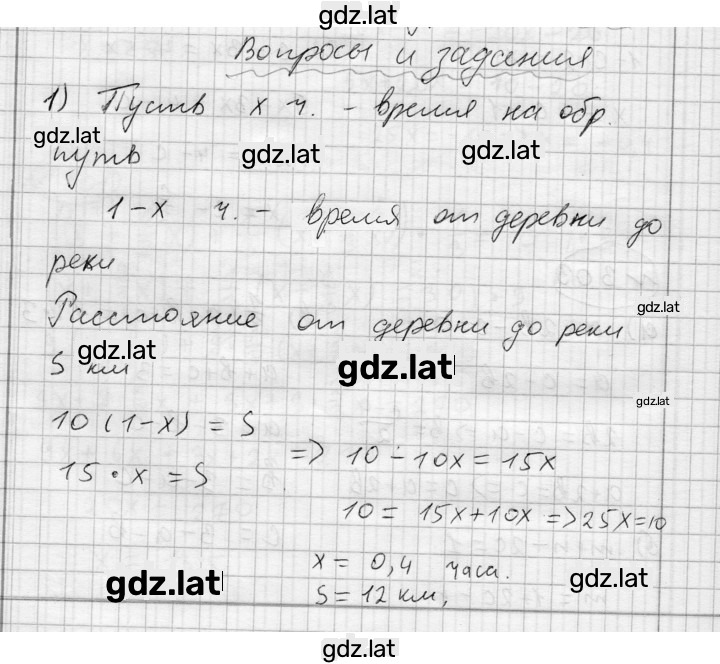 gdz.lat
Вопросы и задания
1) Пусть x ч. - время на обр.
gdz.lat
путь gdz.lat gdz.lat
1-x ч. - время от деревни до
реки
gdz.lat
Расстояние от деревни до реки
gdz.lat
S км gdz.lat
gdz.lat
10 (1-x) = S
15 · x = S => 10 - 10x = 15x
10 = 15x+10x => 25x=10
x = 0,4 часа.
gdz.lat gdz.lat
S = 12 км,
gdz.lat